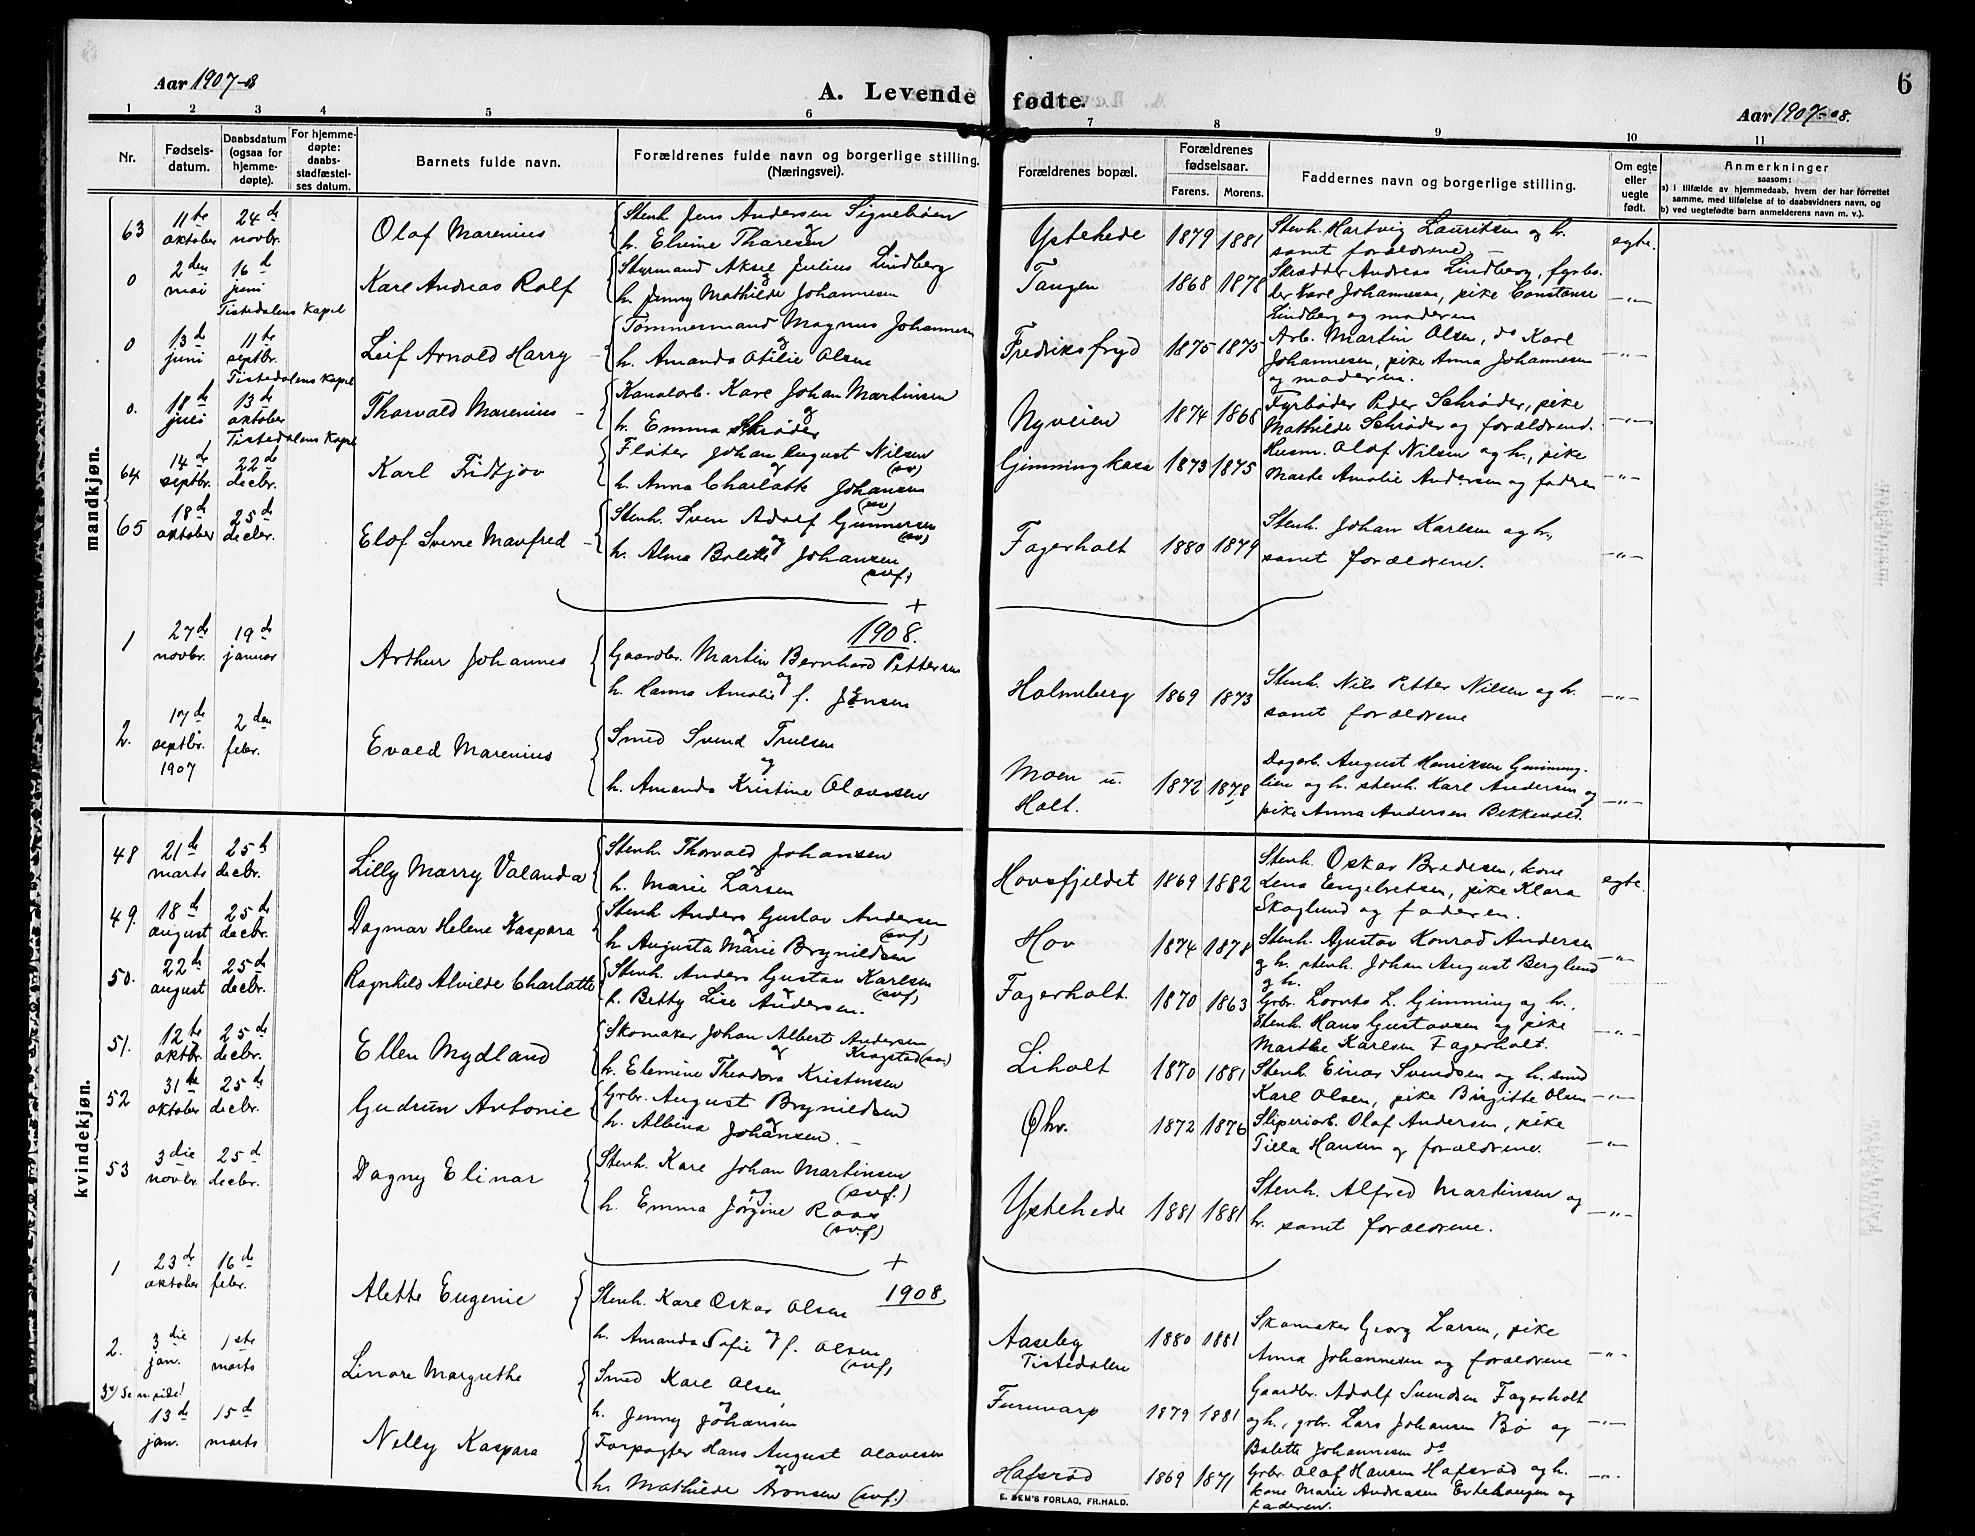 Aar 1907-8
A. Levende fødte.
6
Aar 1907-08.
1 2 3 4 5 6 7 8 9 10 11
Nr.
Fødsels-
datum.
Daabsdatum
(ogsaa for
hjemme-
døpte).
For hjemme-
døpte:
daabs-
stadfæstel-
ses datum.
Barnets fulde navn.
Forældrenes fulde navn og borgerlige stilling.
(Næringsvei).
Forældrenes bopæl.
Forældrenes
fødselsaar.
Farens. Morens.
Faddernes navn og borgerlige stilling.
Om egte
eller
uegte
født.
Anmerkninger
saasom:
a) i tilfælde av hjemmedaab, hvem der har forrettet
samme, med tilføielse af to daabsvidners navn, og
b) ved uegtefødte barn anmelderens navn m. v.).
mandkjøn.
63 11te oktober 24de novbr. Olaf Marenius
Stenh. Jens Andersen Signebøen
og
h. Elvine Tharesen
Ystehede 1879 1881
Stenh. Hartvig Lauritsen og h.
samt forældrene
egte.
0 2den mai 16de juni
Tistedalens Kapel
Karl Andreas Rolf
Styrmand Aksel Julius Lindberg
og
h. Jenny Mathilde Johannesen
Tangen 1868 1878
Skrædder Andreas Lindberg, fyrbø-
der Karl Johannesen, pike Constance
Lindberg og moderen
-"-
0 13de juni 11te septbr.
Tistedalens Kapel
Leif Arnold Harry
Tømmermand Magnus Johannesen
og
h. Amanda Otilie Olsen
Fredriksfryd 1875 1875
Arb. Martin Olsen, do Karl
Johannesen, pike Anna Johannesen
og moderen.
-"-
0. 18de juli 13de oktober
Tistedalens Kapel
Thorvald Marenius
Kanalarb. Karl Johan Martinsen
og
h. Emma Schrøder
Nyveien 1874 1868
Fyrbøder Peder Schrøder, pike
Mathilde Schrøder og forældrene.
-"-
64 14de septbr. 22de decbr. Karl Fridtjov
Fløter Johan August Nilsen
(sv)
h. Anna Charlotte Johansen
(sv)
Gimmingkasa 1873 1875
Husm. Olaf Nilsen og h., pike
Marte Amalie Andersen og fadren
-"-
65 18de oktober 25de decbr. Elof Sverre Manfred
Stenh. Sven Adolf Gunnersen
(sv)
og
h. Alma Bolette Johansen
(svf.)
Fagerholt 1880 1879
Stenh. Johan Karlsen og h.,
samt forældrene.
-"-
1908.
1 27de novbr. 19de januar Arthur Johannes
Gaardbr. Martin Bernhard Pettersen
og
h. Hanna Amalie f. Jensen
Holmberg 1869 1873
Stenh. Nils Petter Nilsen og h.
samt forældrene
-"-
2. 17de septbr. 1907 2den febr. Evald Marenius
Smed Svend Trulsen
og
h. Amanda Kristine Olavesen
Moen u.
Holt. 1872 1878
Dagarb. August Henriksen Gimming-
lien og h. stenh. Karl Andersen og
pike Anna Andersen Bekkevold.
-"-
kvindekjøn.
48 21de marts 25de decbr. Lilly Marry Valanda
Stenh. Thorvald Johansen
og
h. Marie Larsen
Hovsfjeldet 1869 1882
Stenh. Oskar Bredesen, kone
Lena Engebretsen, pike Klara
Skoglund og faderen.
egte.
49. 18de august 25de decbr. Dagmar Helene Kaspara
Stenh. Anders Gustav Andersen
(svf.)
og
h. Augusta Marie Brynildsen
Hov 1874 1878
Stenh. Gustav Konrad Andersen
og h. stenh. Johan August Berglund
og h.
-"-
50. 22de august 25de decbr. Ragnhild Alvilde Charlotte
Stenh. Anders Gustav Karlsen
(svf.)
og
h. Betty Lise Andersen.
Fagerholt. 1870 1863
Grbr. Lornts L. Gimming og h.,
Stenh. Hans Gustavsen og pike
Marthe Karlsen Fagerholt.
-"-
51. 12te oktbr. 25de decbr. Ellen Mydland
Skomaker Johan Albert Andersen
og Kragstad (sv)
h. Elemine Theodora Kristensen
Liholt 1870 1881
Stenh. Einar Svendsen og h. smed
Karl Olsen, pike Birgitte Olsen
-"-
52 31te oktober 25de decbr. Gudrun Antonie
Grbr. August Brynildsen
og
h. Albina Johansen.
Øhv. 1872 1876
Sliperiarb. Olaf Andersen, pike
Tilla Hansen og forældrene.
-"-
53 3die novbr. 25de decbr. Dagny Elinar
Stenh. Karl Johan Martinsen
(svf.)
og
h. Emma Jørgine Roos
(sv.f)
Ystehede 1881 1881
Stenh. Alfred Martinsen og
h. samt forældrene.
-"-
1908.
1 23de oktober 16de febr. Alette Eugenie
Stenh. Karl Oskar Olsen
og
h. Amanda Sofie f. Olsen
(svf)
Aaseby
Tistedalen 1880 1881
Skomaker Georg Larsen, pike
Anna Johannesen og forældrene
-"-
2. 3die jan. 1ste marts Linore Margrethe
Smed Karl Olsen
og
h. Jenny Johansen
Furuvarp 1879 1881
Gaardbr. Adolf Svendsen Fagerholt
og h., grbr. Lars Johansen Bø og
Bolette Johannesen do
-"-
3
13de jan. 15de marts Nelly Kaspara
Forpagter Hans August Olavesen
og
h. Mathilde Aronsen (svf.)
Hafsrød 1869 1871
Grbr. Olaf Hansen Hafsrød og h.
kone Marie Andreasen Ertehaugen og
faderen.
-"-
E. SEM'S FORLAG, FR.HALD.